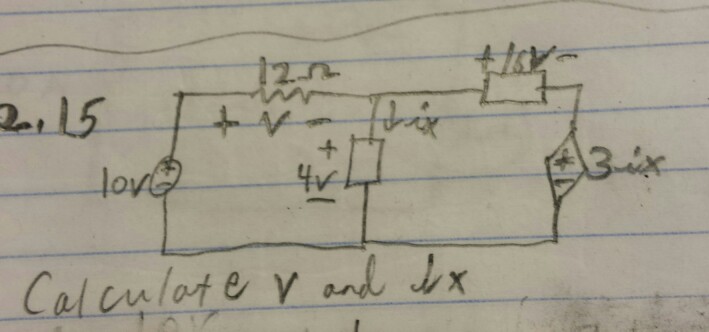 12Ω
+16V-
2.15
+ V -
↓ix
+
10V
+
-
4V
-
+
-
3ix
Calculate v and ix